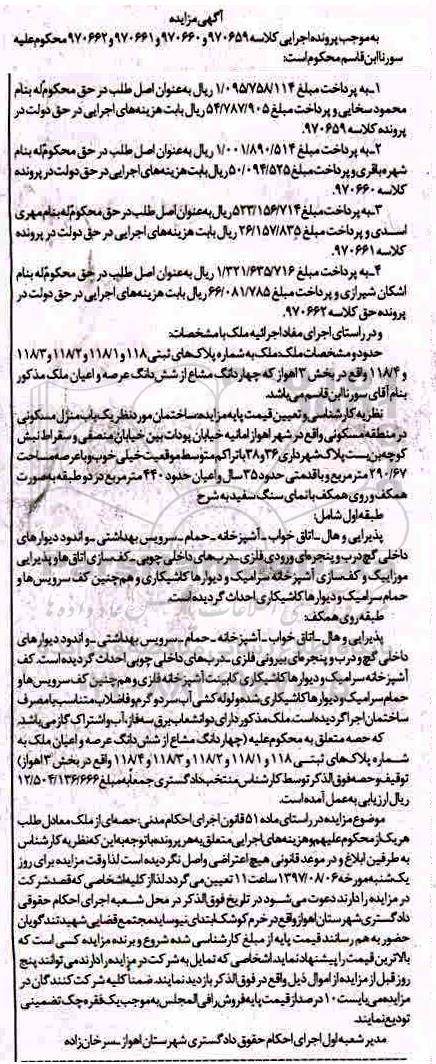 آگهی مزایده
به موجب پرونده اجرایی کلاسه ۹۷۰۶۵۹ و ۹۷۰۶۶۰ و ۹۷۰۶۶۱ و ۹۷۰۶۶۲ محکوم علیه
سورنا ابن قاسم محکوم است:
۱ـ به پرداخت مبلغ ۱/۰۹۵/۷۵۸/۱۱۴ ریال به عنوان اصل طلب در حق محکوم‌له بنام
محمود سخایی و پرداخت مبلغ ۵۴/۷۸۷/۹۰۵ ریال بابت هزینه‌های اجرایی در حق دولت در
پرونده کلاسه ۹۷۰۶۵۹.
۲ـ به پرداخت مبلغ ۱/۰۰۱/۸۹۰/۵۱۴ ریال به عنوان اصل طلب در حق محکوم‌له بنام
شهره باقری و پرداخت مبلغ ۵۰/۰۹۴/۵۲۵ ریال بابت هزینه‌های اجرایی در حق دولت در پرونده
کلاسه ۹۷۰۶۶۰.
۳ـ به پرداخت مبلغ ۵۲۳/۱۵۶/۷۱۴ ریال به عنوان اصل طلب در حق محکوم‌له بنام مهری
اسدی و پرداخت مبلغ ۲۶/۱۵۷/۸۳۵ ریال بابت هزینه‌های اجرایی در حق دولت در پرونده
کلاسه ۹۷۰۶۶۱.
۴ـ به پرداخت مبلغ ۱/۳۲۱/۶۳۵/۷۱۶ ریال به عنوان اصل طلب در حق محکوم‌له بنام
اشکان شیرازی و پرداخت مبلغ ۶۶/۰۸۱/۷۸۵ ریال بابت هزینه‌های اجرایی در حق دولت در
پرونده حق کلاسه ۹۷۰۶۶۲.
و در راستای اجرای مفاد اجرائیه ملک با مشخصات:
حدود و مشخصات ملک: ملک به شماره پلاک‌های ثبتی ۱۱۸ و ۱۱۸/۱ و ۱۱۸/۲ و ۱۱۸/۳
و ۱۱۸/۴ واقع در بخش ۳ اهواز که چهار دانگ مشاع از شش دانگ عرصه و اعیان ملک مذکور
بنام آقای سورنا ابن قاسم می‌باشد.
نظریه کارشناسی و تعیین قیمت پایه مزایده: ساختمان مورد نظر یک باب منزل مسکونی
در منطقه مسکونی واقع در شهر اهواز امانیه خیابان پودات بین خیابان منصفی و سقراط نبش
کوچه بن بست پلاک شهرداری ۳۶ و ۳۸ با تراکم متوسط موقعیت خیلی خوب و با عرصه مساحت
۲۹۰/۶۷ متر مربع و با قدمتی حدود ۳۵ سال و اعیان حدود ۴۴۰ متر مربع در دو طبقه به صورت
همکف و روی همکف با نمای سنگ سفید به شرح
طبقه اول شامل:
پذیرایی و هال ـ اتاق خواب ـ آشپزخانه ـ حمام ـ سرویس بهداشتی ـ و اندود دیوارهای
داخلی گچ درب و پنجره‌های ورودی فلزی ـ درب‌های داخلی چوبی ـ کف‌سازی اتاق‌ها و پذیرایی
موزاییک و کف‌سازی آشپزخانه سرامیک و دیوارها کاشیکاری و هم‌چنین کف سرویس‌ها و
حمام سرامیک و دیوارها کاشیکاری احداث گردیده است.
طبقه روی همکف:
پذیرایی و هال ـ اتاق خواب ـ آشپزخانه ـ حمام ـ سرویس بهداشتی ـ و اندود دیوارهای
داخلی گچ و درب و پنجره‌های بیرونی فلزی ـ درب‌های داخلی چوبی احداث گردیده است. کف
آشپزخانه سرامیک و دیوارها کاشیکاری کابینت آشپزخانه فلزی و هم‌چنین کف سرویس‌ها و
حمام سرامیک و دیوارها کاشیکاری شده و لوله کشی آب سرد و گرم و فاضلاب متناسب با مصرف
ساختمان اجرا گردیده است. ملک مذکور دارای دو انشعاب برق سه فاز، آب و اشتراک گاز می‌باشد.
که حصه متعلق به محکوم علیه (چهار دانگ مشاع از شش دانگ عرصه و اعیان ملک به
شماره پلاک‌های ثبتی ۱۱۸ و ۱۱۸/۱ و ۱۱۸/۲ و ۱۱۸/۳ و ۱۱۸/۴ واقع در بخش ۳ اهواز)
توقیف و حصه فوق الذکر توسط کارشناس منتخب دادگستری جمعاً به مبلغ ۱۲/۵۰۴/۱۳۶/۶۶۶
ریال ارزیابی به عمل آمده است.
موضوع مزایده در راستای ماده ۵۱ قانون اجرای احکام مدنی: حصه‌ای از ملک معادل طلب
هریک از محکوم علیهم و هزینه‌های اجرایی متعلق به هر پرونده با توجه به این که نظریه کارشناس
به طرفین ابلاغ و در موعد قانونی هیچ اعتراضی واصل نگردیده است لذا وقت مزایده برای روز
یک‌شنبه مورخه ۱۳۹۷/۰۸/۰۶ ساعت ۱۱ تعیین می‌گردد. لذا از کلیه اشخاصی که قصد شرکت
در مزایده را دارند دعوت می‌شود در تاریخ فوق الذکر در محل شعبه اجرای احکام حقوقی
دادگستری شهرستان اهواز واقع در خرم کوشک ابتدای نیوساید مجتمع قضایی شهید تندگویان
حضور به هم رسانند قیمت پایه از مبلغ کارشناسی شده شروع و برنده مزایده کسی است که
بالاترین قیمت را پیشنهاد نماید. اشخاصی که تمایل به شرکت در مزایده را دارند می‌توانند پنج
روز قبل از مزایده از اموال ذیل واقع در فوق الذکر بازدید نمایند. ضمناً کلیه شرکت کنندگان در
مزایده می‌بایست ۱۰ درصد از قیمت پایه فروش را فی المجلس به موجب یک فقره چک تضمینی
تودیع نمایند.
مدیر شعبه اول اجرای احکام حقوق دادگستری شهرستان اهواز ـ سرخان زاده